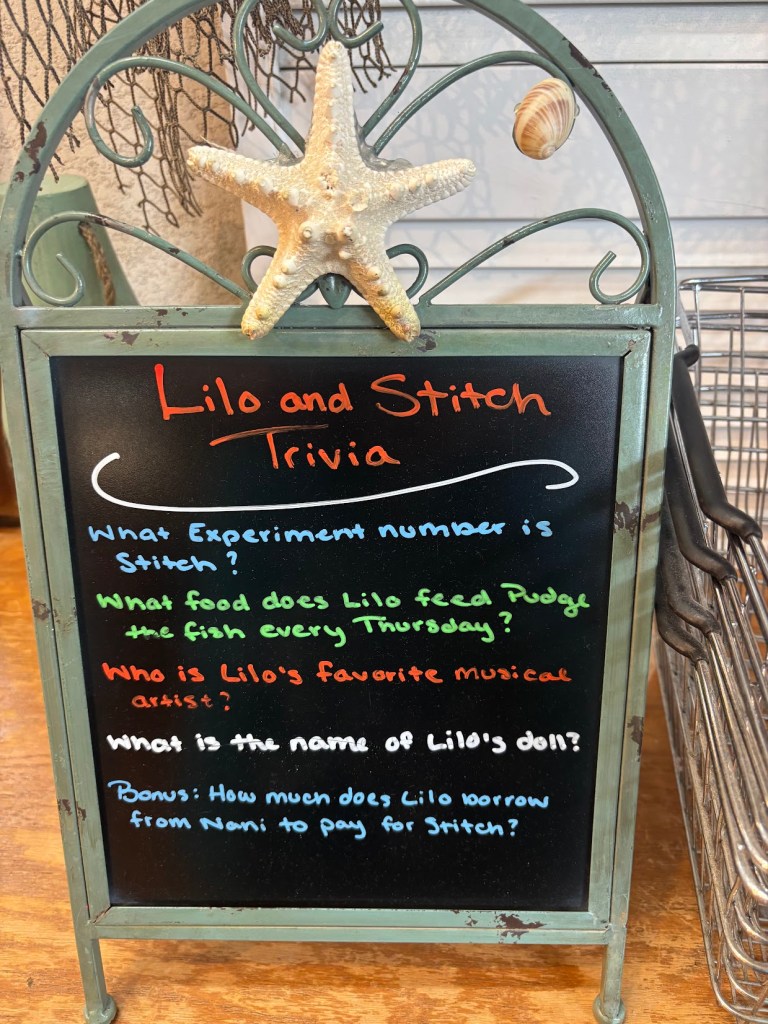 Lilo and Stitch
Trivia
What Experiment number is
Stitch?
What food does Lilo feed Pudge
the fish every Thursday?
Who is Lilo's favorite musical
artist?
What is the name of Lilo's doll?
Bonus: How much does Lilo borrow
from Nani to pay for Stitch?